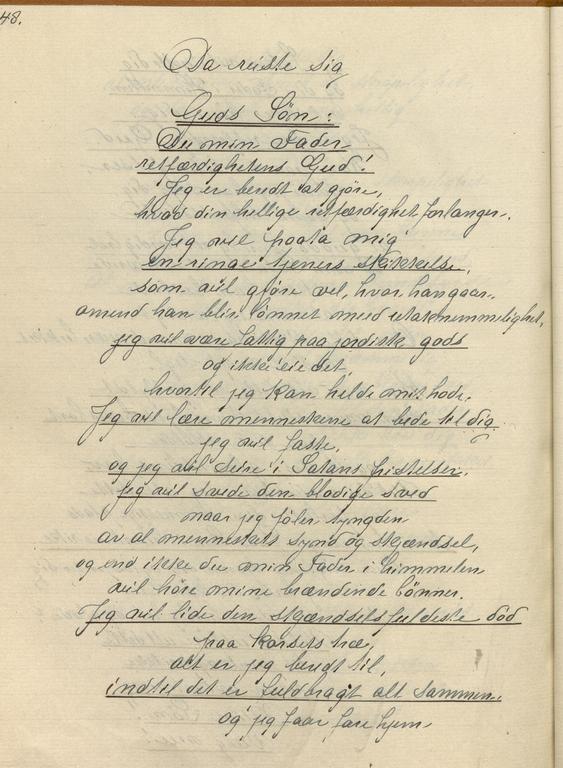 48.
Da reiste sig
Guds Søn:
Du min Fader
retfærdighetens Gud!
Jeg er beredt at gjøre,
hvad din hellige retfærdighet forlanger.
Jeg vil paata mig
en ringe tjeners skikkelse,
som vil gjøre vel, hvor han gaar,
omend han blir lønnet med utaknemmelighet,
jeg vil være fattig paa jordisk gods
og ikke eie det,
hvortil jeg kan helde mit hode.
Jeg vil lære menneskene at bede til dig.
jeg vil faste,
og jeg vil seire i Satans fristelser.
Jeg vil svede den blodige sved
naar jeg føler tyngden
av al menneskets synd og skjændsel,
og end ikke du min Fader i himmelen
vil høre mine brændende bønner.
Jeg vil lide den skjændselsfuldeste død
paa korsets træ,
alt er jeg beredt til,
indtil det er fuldbragt alt sammen.
og jeg faar fare hjem